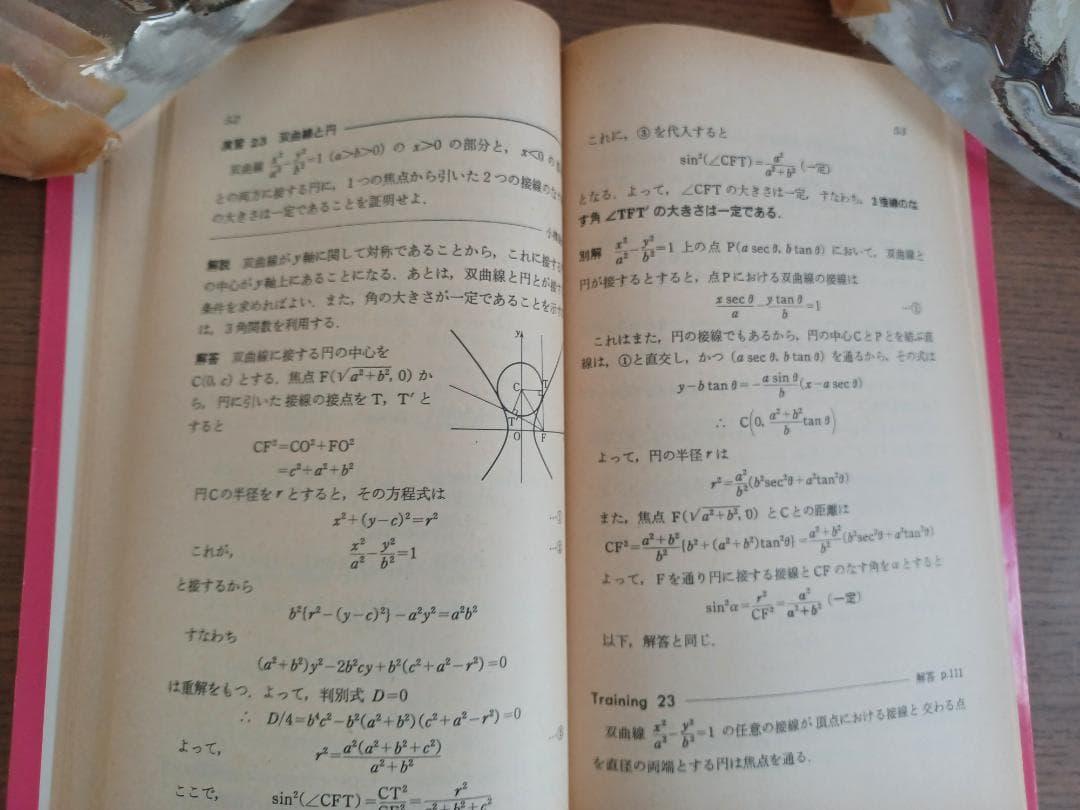 52
演習 23 双曲線と円
双曲線 x²/a² − y²/b² = 1 (a>b>0) の x>0 の部分と, x<0 の
との両方に接する円に, 1つの焦点から引いた2つの接線のな
の大きさは一定であることを証明せよ.
解説 双曲線がy軸に関して対称であることから, これに接する
の中心がy軸上にあることになる. あとは, 双曲線と円とが接す
条件を求めればよい. また, 角の大きさが一定であることを示す
は, 3角関数を利用する.
解答 双曲線に接する円の中心を
C(0, c) とする. 焦点 F(√(a²+b²), 0) か
ら, 円に引いた接線の接点を T, T′ と
すると
CF²=CO²+FO²
=c²+a²+b²
y
C
T
T′
O
F
円Cの半径をrとすると, その方程式は
x²+(y−c)²=r² …①
これが, x²/a² − y²/b² = 1 …②
と接するから
b²{r²−(y−c)²}−a²y²=a²b²
すなわち
(a²+b²)y²−2b²cy+b²(c²+a²−r²)=0
は重解をもつ. よって, 判別式 D=0
∴ D/4=b⁴c²−b²(a²+b²)(c²+a²−r²)=0
よって, r²=a²(a²+b²+c²)/(a²+b²) …③
ここで, sin²(∠CFT)=CT²/CF²=r²/(a²+b²+c²)
53
これに, ③を代入すると
sin²(∠CFT)=a²/(a²+b²) (一定)
となる. よって, ∠CFT の大きさは一定, すなわち, 2接線のな
す角 ∠TFT′ の大きさは一定である.
別解 x²/a² − y²/b² = 1 上の点 P(a sec θ, b tan θ) において, 双曲線と
円が接するとすると, 点Pにおける双曲線の接線は
x sec θ/a − y tan θ/b = 1 …①
これはまた, 円の接線でもあるから, 円の中心CとPとを結ぶ直
線は, ①と直交し, かつ (a sec θ, b tan θ) を通るから, その式は
y−b tan θ=−(a sin θ/b)(x−a sec θ)
∴ C(0, (a²+b²)/b tan θ)
よって, 円の半径 r は
r²=a²/b²(b²sec²θ+a²tan²θ)
また, 焦点 F(√(a²+b²), 0) とCとの距離は
CF²=(a²+b²)/b²{b²+(a²+b²)tan²θ}=(a²+b²)/b²(b²sec²θ+a²tan²θ)
よって, Fを通り円に接する接線とCFのなす角をαとすると
sin²α=r²/CF²=a²/(a²+b²) (一定)
以下, 解答と同じ.
解答 p.111
Training 23
双曲線 x²/a² − y²/b² = 1 の任意の接線が頂点における接線と交わる点
を直径の両端とする円は焦点を通る.